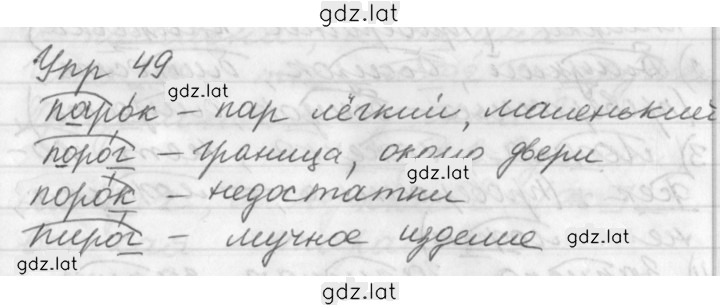 gdz.lat
Упр 49
gdz.lat
парок – пар лёгкий, маленький
порог – граница, около двери
gdz.lat
порок – недостатки
пирог – мучное изделие gdz.lat
gdz.lat
gdz.lat